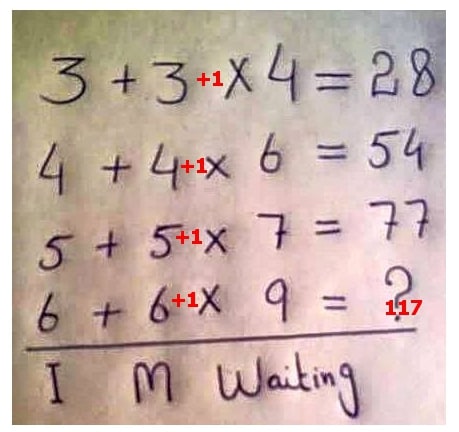 3 + 3 +1 X 4 = 28
4 + 4 +1 x 6 = 54
5 + 5 +1 x 7 = 77
6 + 6 +1 X 9 = ? 117
I M Waiting